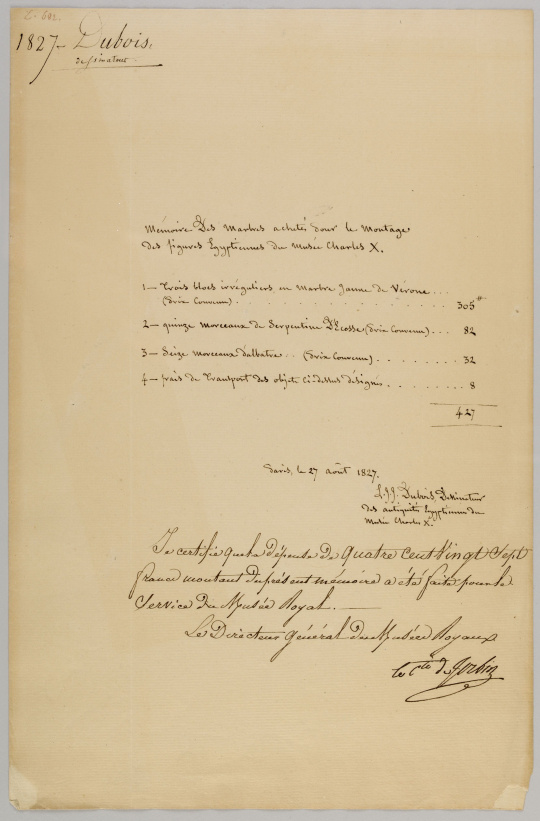 1827 - Dubois.
dessinateur
Mémoire Des Marbres achetés pour le montage
des figures Egyptiennes du Musée Charles X.
1 — Trois blocs irréguliers en Marbre Jaune de Vérone ...
(Prix Convenu) . . . . . . . . . . 305 ff
2 — quinze morceaux de Serpentine D'Ecosse (Prix Convenu) ... 82
3 — Seize morceaux d'albatre .. (Prix Convenu) . . . . . . 32
4 — frais de Transport des objets Ci-dessus désignés . . . . . . 8
427
Paris, le 27 août 1827.
L. J. J. Dubois, Dessinateur
des antiquités Egyptiennes du
Musée Charles X.
Je certifie que la dépense de quatre cent vingt sept
francs montant du présent mémoire a été faite pour le
Service du Musée Royal. —
Le Directeur général des Musées Royaux
le Cte de Forbin